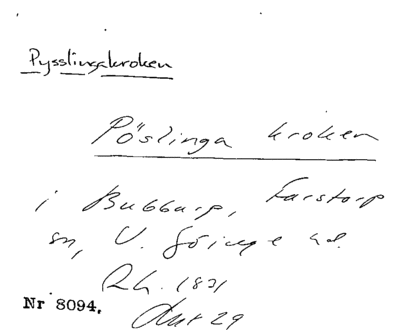 Pysslingakroken
Pöslinga kroken
i Bubbarp, Farstorp
sn, V. Göinge hd.
Rh. 1831
Nr 8094.
Akt 29